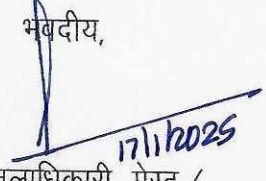 भवदीय,
17/1/2025
जिलाधिकारी, मेरठ /